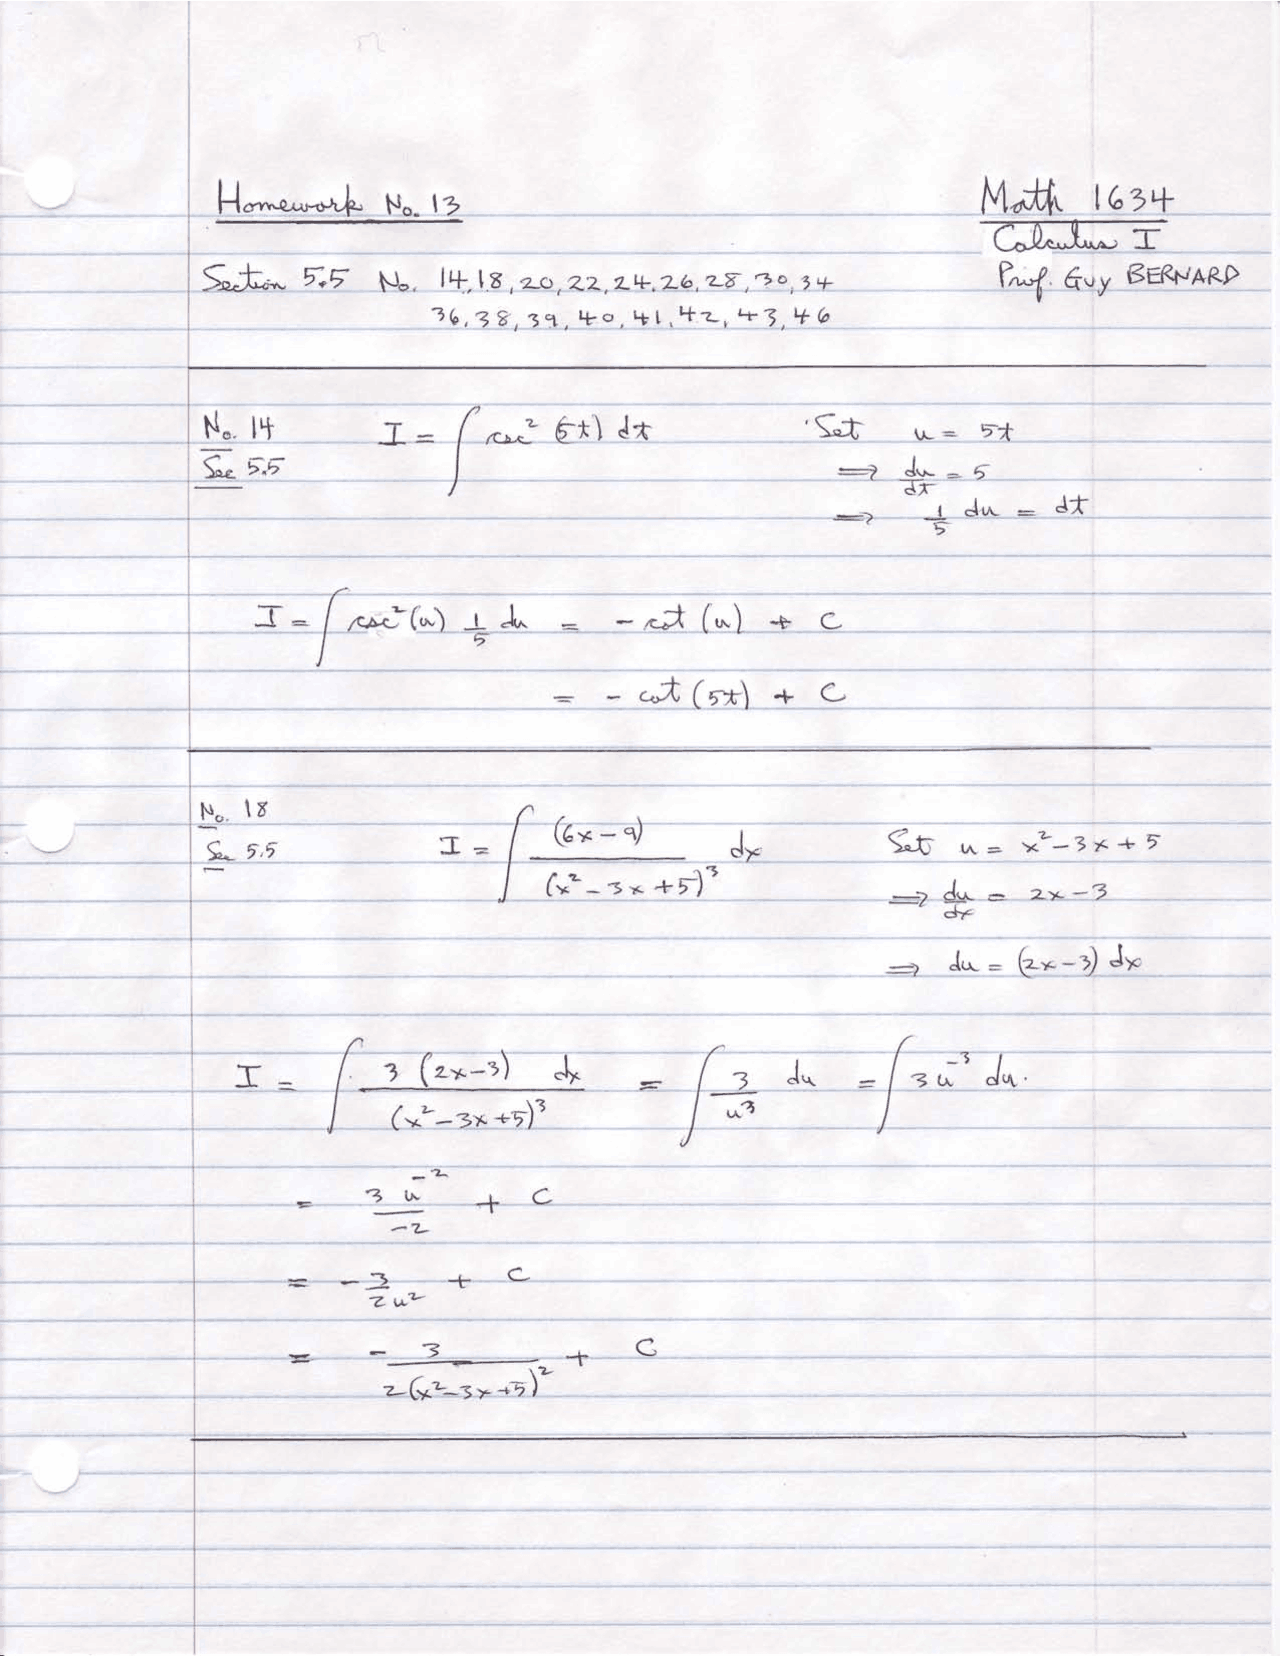 Homework No. 13
Math 1634
Calculus I
Prof. Guy BERNARD
Section 5.5 No. 14, 18, 20, 22, 24, 26, 28, 30, 34
36, 38, 39, 40, 41, 42, 43, 46
No. 14
Sec 5.5
I = ∫ csc² (5t) dt
Set u = 5t
⟹ du/dt = 5
⟹ 1/5 du = dt
I = ∫ csc²(u) 1/5 du = - cot (u) + C
= - cot (5t) + C
No. 18
Sec 5.5
I = ∫ (6x-9)/(x² - 3x + 5)³ dx
Set u = x² - 3x + 5
⟹ du/dx = 2x - 3
⟹ du = (2x-3) dx
I = ∫ 3 (2x-3) dx/(x² - 3x + 5)³ = ∫ 3/u³ du = ∫ 3u⁻³ du.
= 3 u⁻²/-2 + C
= - 3/2u² + C
= - 3/2(x²-3x+5)² + C